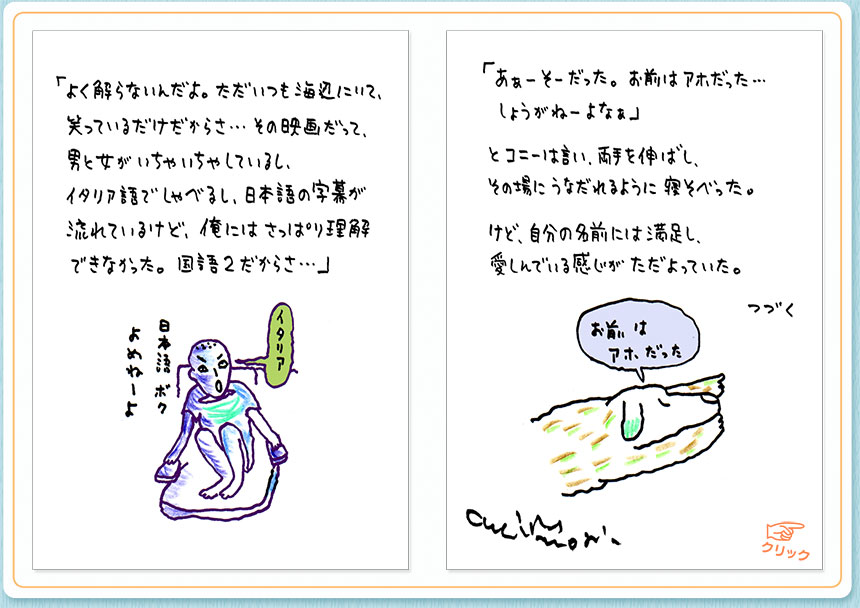 「よく解らないんだよ。ただいつも海辺にいて、
笑っているだけだからさ…その映画だって、
男と女がいちゃいちゃしているし、
イタリア語でしゃべるし、日本語の字幕が
流れているけど、俺にはさっぱり理解
できなかった。国語2だからさ…」
イタリア
日本語 ボク
よめねーよ
「あぁーそーだった。お前はアホだった…
しょうがねーよなぁ」
とコニーは言い、両手を伸ばし、
その場にうなだれるように寝そべった。
けど、自分の名前には満足し、
愛しんでいる感じがただよっていた。
つづく
お前は
アホだった
クリック